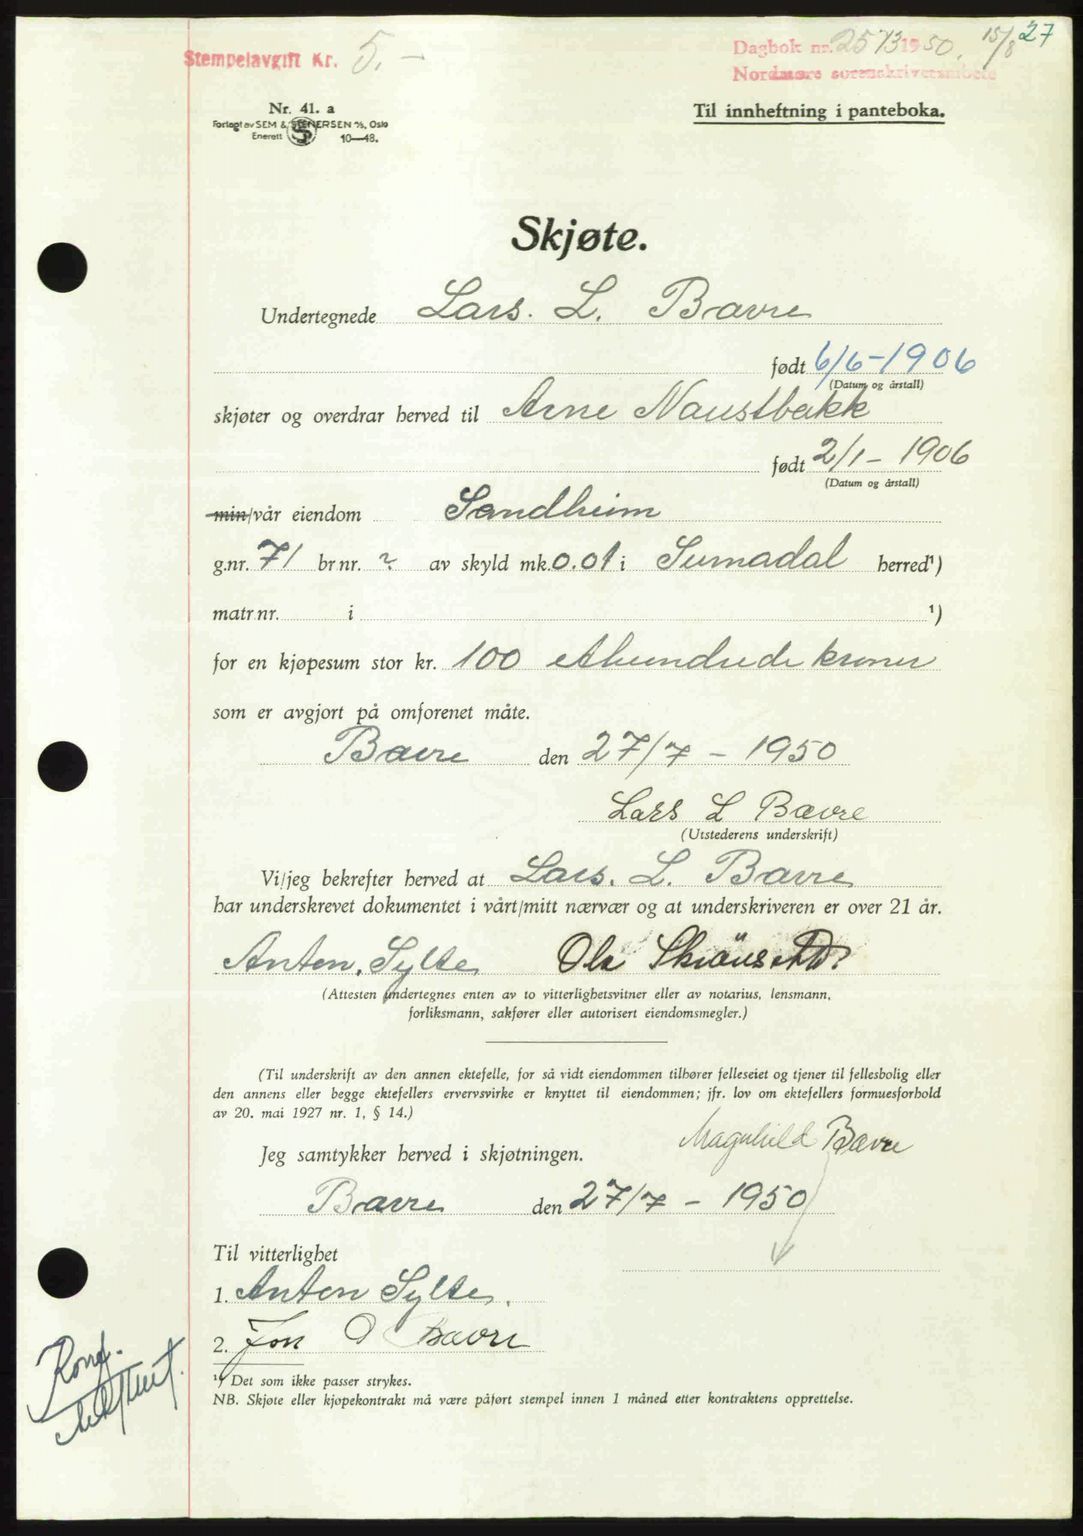 Stempelavgift Kr. 5.-
Dagbok nr. 2573 1950. 15/8 27
Nordmøre sorenskriverembete
Nr. 41. a
Forlagt av SEM & STENERSEN A/S, Oslo
Enerett 10-48.
Til innheftning i panteboka.
Skjøte.
Undertegnede Lars. L. Bævre
født 6/6-1906
(Datum og årstall)
skjøter og overdrar herved til Arne Naustbakk
født 2/1-1906
(Datum og årstall)
min/vår eiendom Sandheim
g.nr. 71 br.nr. ? av skyld mk. 0.01 i Surnadal herred¹)
matr.nr. i ¹)
for en kjøpesum stor kr. 100 Ethundrede kroner
som er avgjort på omforenet måte.
Bævre den 27/7 - 1950
Lars L Bævre
(Utstederens underskrift)
Vi/jeg bekrefter herved at Lars. L. Bævre
har underskrevet dokumentet i vårt/mitt nærvær og at underskriveren er over 21 år.
Anton. Sylte Ola
(Attesten undertegnes enten av to vitterlighetsvitner eller av notarius, lensmann,
forliksmann, sakfører eller autorisert eiendomsmegler.)
(Til underskrift av den annen ektefelle, for så vidt eiendommen tilhører felleseiet og tjener til fellesbolig eller
den annens eller begge ektefellers ervervsvirke er knyttet til eiendommen; jfr. lov om ektefellers formuesforhold
av 20. mai 1927 nr. 1, § 14.)
Magnhild Bævre
Jeg samtykker herved i skjøtningen.
Bævre den 27/7 - 1950
Til vitterlighet
1. Anton Sylte.
2. Jon O Bævre
¹) Det som ikke passer strykes.
NB. Skjøte eller kjøpekontrakt må være påført stempel innen 1 måned etter kontraktens opprettelse.
Konf.